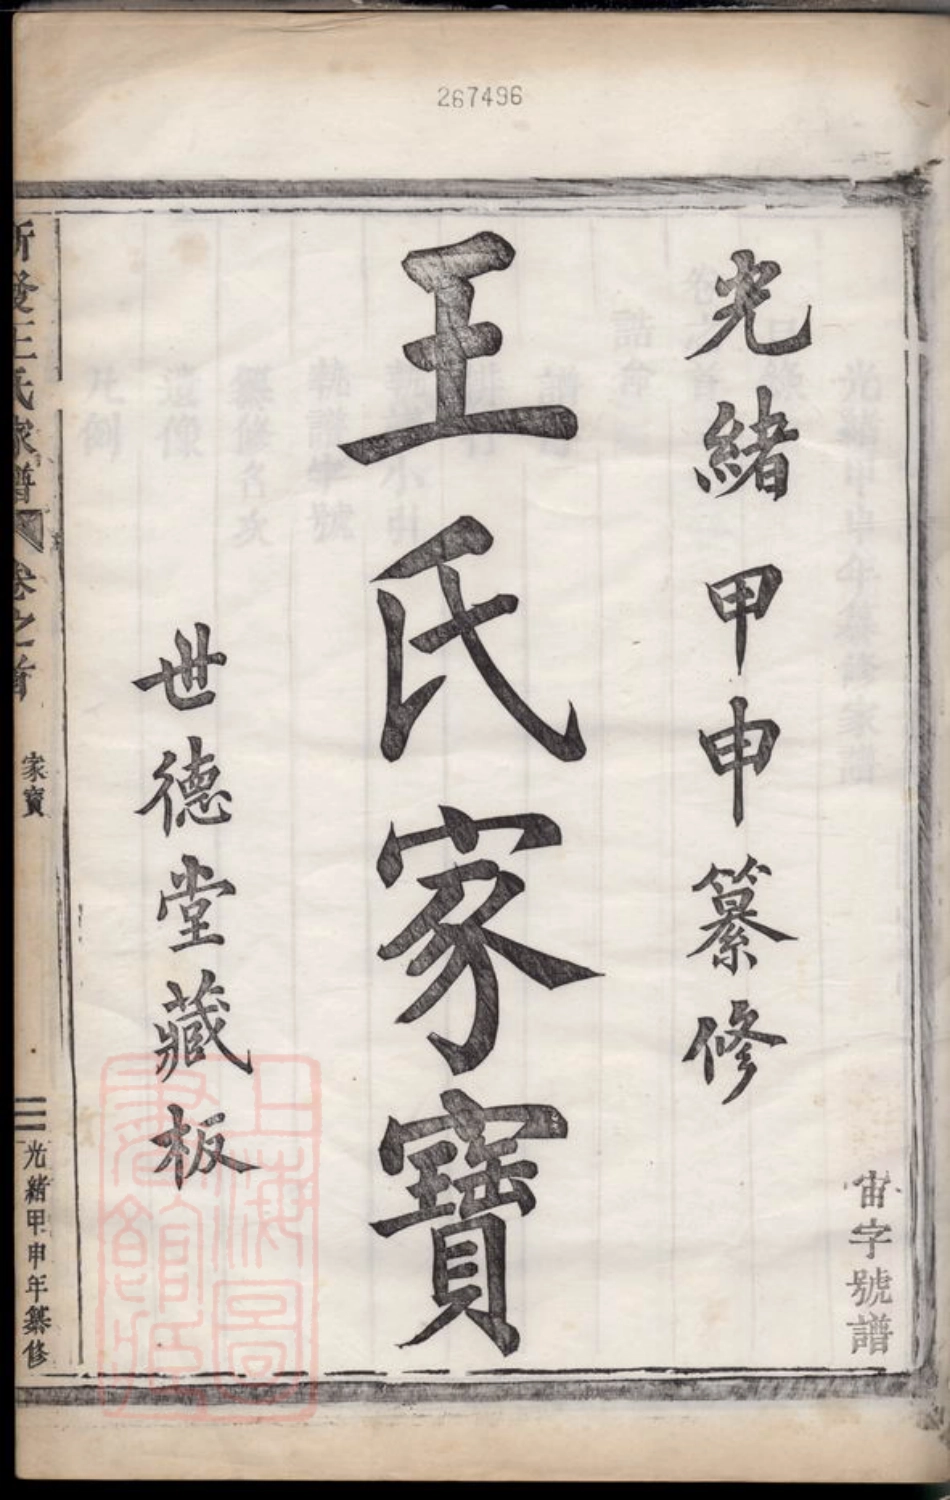 267496
光緒甲申纂修
宙字號譜
王氏家寶
世德堂藏板
王氏家譜 卷之首 家寶 二 光緒甲申年纂修
上海圖書館藏